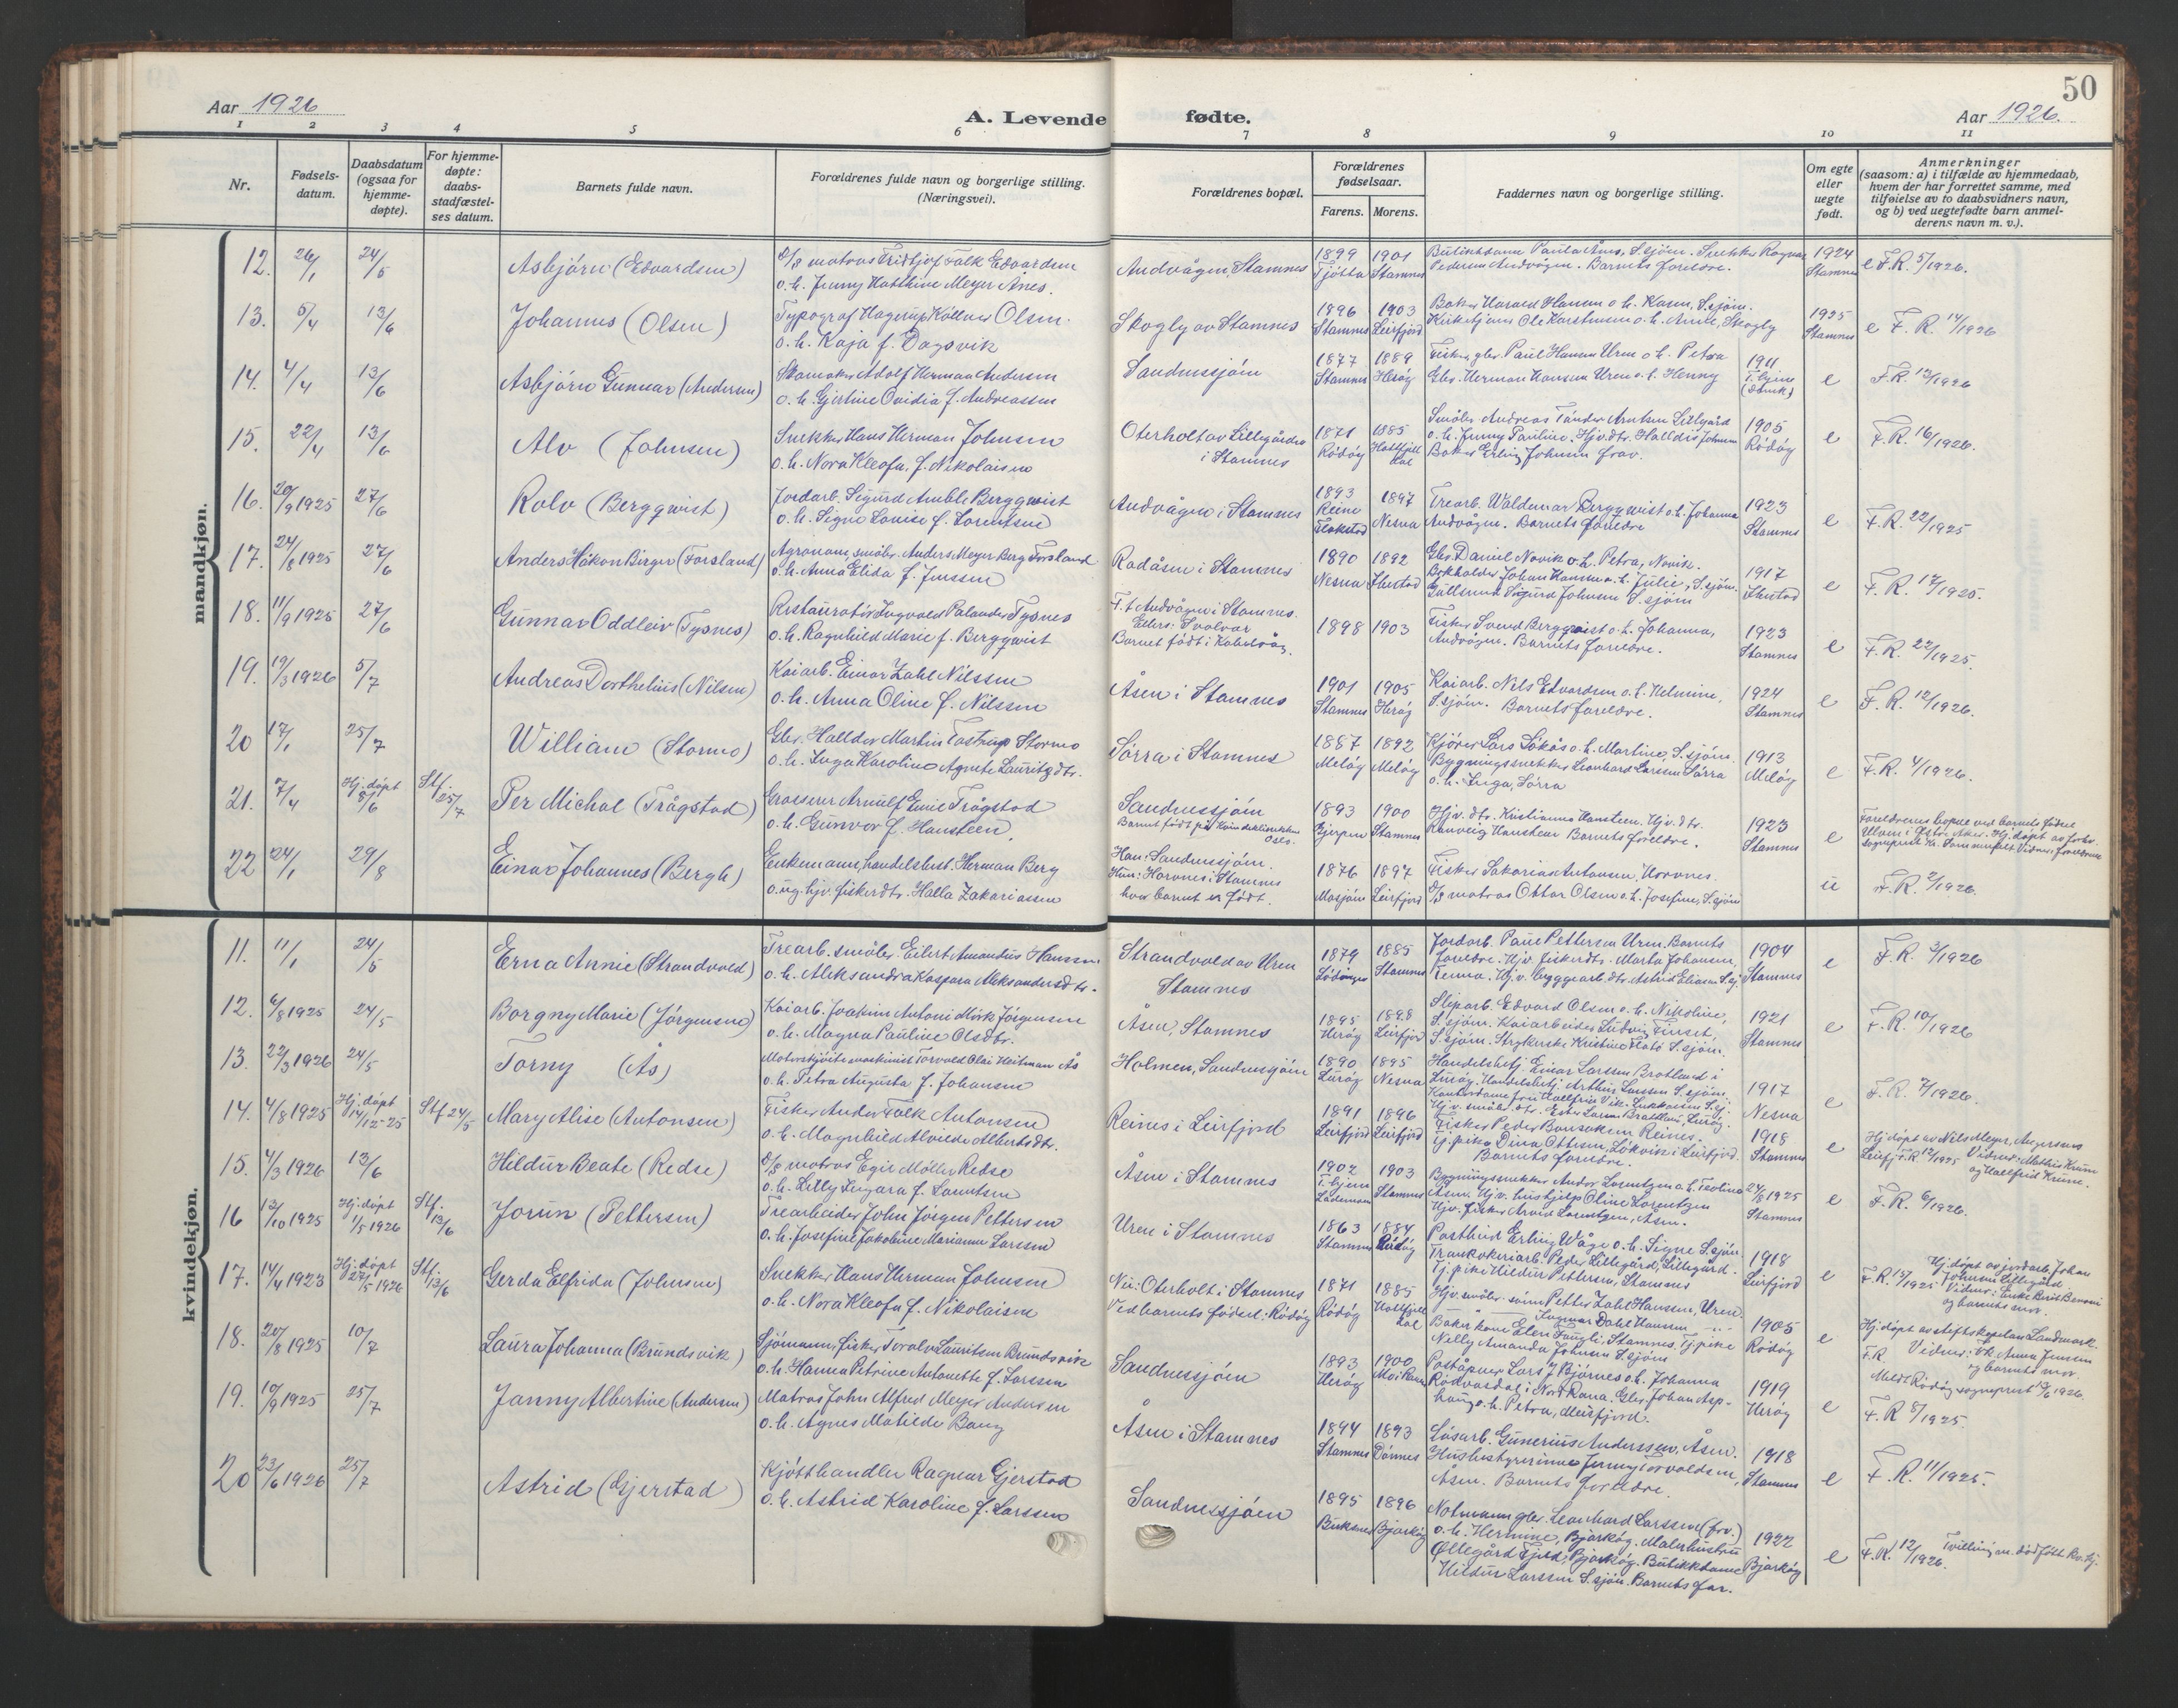 50
Aar 1926
A. Levende fødte.
Aar 1926.
1 2 3 4 5 6 7 8 9 10 11
Nr.
Fødsels-
datum.
Daabsdatum
(ogsaa for
hjemme-
døpte).
For hjemme-
døpte:
daabs-
stadfæstel-
ses datum.
Barnets fulde navn.
Forældrenes fulde navn og borgerlige stilling.
(Næringsvei).
Forældrenes bopæl.
Forældrenes
fødselsaar.
Farens. Morens.
Faddernes navn og borgerlige stilling.
Om egte
eller
uegte
født.
Anmerkninger
(saasom: a) i tilfælde av hjemmedaab,
hvem der har forrettet samme, med
tilføielse av to daabsvidners navn,
og b) ved uegtefødte barn anmel-
derens navn m. v.).
mandkjøn.
12. 26/1 24/5 Asbjörn (Edvardsen)
D/S matros Fridtjof Falk Edvardsen
o. h. Jenny Hatthine Meyer Anes.
Andvågen, Stamnes
1899 1901
Tjötta Stamnes
Pedersen Andvågen. Barnets foreldre.
1924
Stamnes
e F.R. 5/1926.
13. 5/4 13/6 Johannes (Olsen)
Typograf Hagerup Kollner Olsen.
o. h. Kaja f. Dagsvik
Skogly av Stamnes
1896 1903
Stamnes Leirfjord
Baker Harald Hansen o. h. Karen, S.sjöen.
Kirketjener Ole Karstensen o. h. Anne, Skogly
1925
Stamnes
e F. R. 14/1926
14. 4/4 13/6 Asbjörn Gunnar (Andersen)
Skomaker Adolf Herman Andersen
o. h. Gjertine Ovidia f. Andreassen
Sandnessjöen
1877 1889
Stamnes Heröy
Fisker, gbr. Paul Hansen Uren o. h. Petra
Gbr. Herman Hansen Uren o. h. Henny
1911
e F.R. 13/1926
15. 22/4 13/6 Alv (Johnsen)
Snekker Hans Herman Johnsen
o. h. Nora Kleofa f. Nikolaisen
Oterholt av Lillegården
i Stamnes
1871 1885
Rödöy Hattfjell
dal
Småbr. Andreas Tander Arntsen Lillegård
o. h. Jenny Pauline, Hjv. dtr. Halldis Johnsen
Baker Erling Johnsen frav.
1905
Rödöy
e F.R. 16/1926.
16. 20/9 1925 27/6 Rolv (Bergqvist)
Jordarb. Sigurd Amble Bergqvist
o. h. Signe Louise f. Lorentsen
Andvågen i Stamnes
1893 1897
Reine
Flakstad Nesna
Trearb. Waldemar Bergqvist o. h. Johanna
Andvågen. Barnets foreldre
1923
Stamnes
e F.R. 22/1925
17. 24/8 1925 27/6 Anders Håkon Birger (Forsland)
Agronom, småbr. Anders Meyer Berg Forsland
o. h. Anna Elida f. Jenssen
Radåsen i Stamnes
1890 1892
Nesna Ibestad
Gbr. Daniel Novik o. h. Petra, Novik.
Bokholder Johan Hansen o. h. Julie, S.sjöen.
Gullsmed Sigurd Johnsen S.sjöen
1917
Ibestad
e F.R. 17/1925.
18. 11/9 1925 27/6 Gunnar Oddleiv (Tysnes)
Restauratör Ingvald Palander Tysnes
o. h. Ragnhild Marie f. Bergqvist
F. t. Andvågen i Stamnes.
Ellers: Svolvær
Barnet født i Kabelvåg.
1898 1903
Fisker Svend Bergqvist o. h. Johanna,
Andvågen. Barnets foreldre.
1923
Stamnes
e F.R. 22/1925.
19. 19/3 1926 5/7 Andreas Dorthelius (Nilsen)
Kaiarb. Einar Zahl Nilssen
o. h. Anna Oline f. Nilssen
Åsen i Stamnes
1901 1905
Stamnes Heröy
Kaiarb. Nils Edvardsen o. h. Helmine,
S.sjöen. Barnets foreldre.
1924
Stamnes
e F.R. 12/1926.
20 17/1 25/7 William (Stormo)
Gbr. Halldor Martin Tostrup Stormo
o. h. Inga Karoline Agnete Lauritzdtr.
Sörra i Stamnes
1887 1892
Melöy Melöy
Kjörer Lars Sökås o. h. Martine, S.sjöen.
Bygningssnekker Leonhard Larssen Sörra
o. h. Inga, Sörra
1913
Melöy
e F.R. 4/1926.
21. 7/4 Hj. döpt 8/6 Stf. 25/7 Per Michal (Trågstad)
Grosserer Arnulf Emil Trågstad
o. h. Gunvor f. Hansteen
Sandnessjöen
Barnet født på Kvindeklinikken
Oslo.
1893 1900
Gjerpen Stamnes
Hjv. dtr. Kristianna Hansteen. Hjv. dtr.
Ranveig Hansteen Barnets foreldre.
1923
Stamnes
e
Foreldrenes bopæl ved barnets fødsel
Ullern i Østre Aker. Hj. döpt av
22 24/1 29/8 Einar Johannes (Bergh)
Enkemann, handelsbest. Herman Berg
o. ug. hjv. fiskerdtr. Halla Zakariassen
Han: Sandnessjöen.
Hun: Horvnes i Stamnes
hvor barnet er født.
1876 1897
Mosjöen Leirfjord
Fisker Sakarias Antonsen, Horvnes.
D/S matros Ottar Olsen o. h. Josefine, S.sjöen
u F.R. 2/1926.
kvindekjøn.
11. 11/1 24/5 Erna Annie (Strandvold)
Trearb. småbr. Eilert Amandus Hanssen
o. h. Aleksandra Kaspara Aleksandersdtr.
Strandvold av Uren
Stamnes
1879 1885
Lödingen Stamnes
Jordarb. Paul Pettersen Uren. Barnets
foreldre. Hjv. fiskerdtr. Marta Johansen,
Tenna. Hjv. byggearb. dtr. Astrid Eliasen S.sj.
1904
Stamnes
e F.R. 3/1926
12. 6/8 1925 24/5 Borgny Marie (Jörgensen)
Kaiarb. Joakim Antoni Mörk Jörgensen
o. h. Magna Pauline Olsdtr.
Åsen, Stamnes
1895 1898
Heröy Leirfjord
Sliparb. Edvard Olsen o. h. Nikoline,
S.sjöen. Kaiarbeider Ludvig Finset,
S.sjöen. Strykerske Kristine Flatö S.sjöen.
1921
Stamnes
e F.R. 10/1926
13. 22/3 1926 24/5 Torny (Ås)
Motorskjöitemaskinist Torvald Olai Heitman Ås
o. h. Petra Augusta f. Johansen
Holmen, Sandnessjöen
1890 1895
Luröy Nesna
Handelsbetj. Einar Larssen Bratland i
Luröy. Handelsbetj. Arthur Larssen S.sjöen.
1917
Nesna
e F.R. 7/1926.
14. 4/8 1925 Hj. döpt 14/12-25 Stf. 24/5 Mary Alise (Antonsen)
Fisker Ander Falk Antonsen
o. h. Magnhild Alvilde Albertsdtr.
Reines i Leirfjord
1891 1896
Leirfjord Leirfjord
Fisker Peder Bonsaksen Reines.
Tj. pike Dina Ottesen, Lökvik i Leirfjord.
Barnets foreldre.
1918
Stamnes
e Hj. döpt av Nils Meyer, Angersnes
Leirfj. F.R. 12/1925 Vidner: Mathis Krum
og Hallfrid Krum.
15. 4/3 1926 13/6 Hildur Beate (Redse)
D/S matros Egil Möller Redse
o. h. Lilly Ingara f. Lorentsen
Åsen i Stamnes
1902 1903
Stamnes
Bygningssnekker Andor Lorentzen o. h. Teoline
Åsen. Hjv. hushjelp Oline Lorentzen
Hjv. fisker Arvid Lorentzen, Åsen.
24/8 1925
Stamnes
e F.R. 6/1926.
16 13/10 1925 Hj. döpt 1/5 1926 Stf. 13/6 Jorun (Pettersen)
Trearbeider John Jörgen Pettersen
o. h. Josefine Jakobine Marianne Larssen
Uren i Stamnes
1863 1884
Stamnes Rödöy
Postbud Erling Våge o. h. Signe S.sjöen.
Trankokeriarb. Peder Lillegård, Lillegård.
Tj. pike Hildur Pettersen, Stamnes
1918
Leirfjord
e F.R. 15/1925
Hj. döpt av jordarb. Johan
Johnsen Lillegård
Vidner: Enke Berit Benoni
og barnets mor.
17. 14/4 1923 Hj. döpt 27/5 1926 Stf. 13/6 Gerda Elfrida (Johnsen)
Snekker Hans Herman Johnsen
o. h. Nora Kleofa f. Nikolaisen
Nu: Oterholt i Stamnes
Ved barnets födsel: Rödöy
1871 1885
Rödöy Hattfjell
dal
Hjv. småbr. sönn Petter Zahl Hanssen, Uren.
Ingmar Dahl Hansen
Baker kone Elen Fuugli Stamnes. Tj. pike
Nelly Amanda Johnsen S.sjöen
1905
Rödöy
e Hj. döpt av stiftskapelan Landmark.
F.R. Vidner: frk. Anna Jensen
og barnets mor.
Meldt Rödöy sogneprest 19/6 1926.
18. 20/8 1925 10/7 Laura Johanna (Brundsvik)
Sjömann, fisker Torolv Lauritsen Brundsvik
o. h. Hanna Petrine Antonette f. Larssen
Sandnessjöen
1893 1900
Heröy Mo i Rana
Poståpner Lars J. Bjørnes o. h. Johanna
Rödvassdal i Nord Rana. Gbr. Johan Asp-
haug o. h. Petra, Meisfjord.
1919
Heröy
e F.R 8/1925.
19. 19/9 1925 25/7 Janny Albertine (Andersen)
Matros John Alfred Meyer Andersen
o. h. Agnes Matilde Bang
Åsen i Stamnes
1894 1893
Stamnes Dönnes
Lösarb. Gunerius Anderssen, Åsen.
Husbestyrerinne Jenny Torvaldsen,
Åsen. Barnets foreldre.
1918
Stamnes
e F.R. 11/1925.
20 23/6 1926 25/7 Astrid (Gjerstad)
Kjötthandler Ragnar Gjerstad
o. h. Astrid Karoline f. Larssen
Sandnessjöen
1895 1896
Buksnes Bjarköy
Notmann gbr. Leonhard Larssen (frv.)
o. h. Hermine, Bjarköy. Malerhustru
Øllegård Fjeld, Bjarköy. Butikkdame
Hildur Larssen S.sjöen. Barnets far.
1922
Bjarköy
e F.R. 12/1926. Tvilling m. dödfött kv. kj.